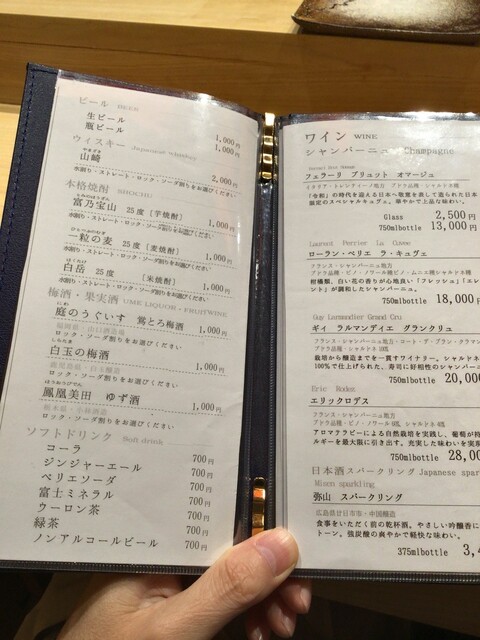 ビール BEER
生ビール 1,000円
瓶ビール 1,000円
ウィスキー Japanese whiskey
やまざき
山崎 2,000円
水割り・ストレート・ロック・ソーダ割りをお選びください
本格焼酎 SHOCHU
とみのほうざん
富乃宝山 25度 [芋焼酎] 1,000円
水割り・ストレート・ロック・ソーダ割りをお選びください
ひとつぶのむぎ
一粒の麦 25度 [麦焼酎] 1,000円
水割り・ストレート・ロック・ソーダ割りをお選びください
はくたけ
白岳 25度 [米焼酎] 1,000円
水割り・ストレート・ロック・ソーダ割りをお選びください
梅酒・果実酒 UME LIQUOR・FRUITWINE
にわ
庭のうぐいす 鶯とろ梅酒 1,000円
福岡県・山口酒造場
ロック・ソーダ割りをお選びください
しらたま
白玉の梅酒 1,000円
鹿児島県・白玉醸造
ロック・ソーダ割りをお選びください
ほうおうびでん
鳳凰美田 ゆず酒 1,000円
栃木県・小林酒造
ロック・ソーダ割りをお選びください
ソフトドリンク Soft drink
コーラ 700円
ジンジャーエール 700円
ペリエソーダ 700円
富士ミネラル 700円
ウーロン茶 700円
緑茶 700円
ノンアルコールビール 700円
ワイン WINE
シャンパーニュ Champagne
フェラーリ ブリュット オマージュ
イタリア・トレンティーノ地方 ブドウ品種・シャルドネ種
「令和」の時代を迎える日本へ敬意を表して造られた日本
限定のスペシャルキュヴェ。華やかで上品な味わい。
Glass 2,500円
750mlbottle 13,000円
Laurent Perrier La Cuvee
ローラン・ペリエ ラ・キュヴェ
フランス・シャンパーニュ地方
ブドウ品種・ピノ・ノワール種ピノ・ムニエ種シャルドネ種
柑橘類、白い花の香りが心地良い「フレッシュ」「エレ
ント」が調和したシャンパーニュ。
750mlbottle 18,000
Guy Larmandier Grand Cru
ギィ ラルマンディエ グランクリュ
フランス・シャンパーニュ地方・コート・デ・ブラン・クラマン
ブドウ品種・シャルドネ 100%
栽培から醸造までを一貫すワイナリー。シャルドネ
100%で仕上げられた、寿司に好相性のシャンパーニ
750mlbottle 20,00
Eric Rodez
エリックロデズ
フランス・シャンパーニュ地方
アロマテラピーによる自然栽培を実践し、葡萄が持
ルギーを最大限に引き出す。充実した味わいを実
750mlbottle 28,00
日本酒スパークリング Japanese spar
Misen sparkling
弥山 スパークリング
広島県廿日市市・中国醸造
食事をいただく前の乾杯酒。やさしい吟醸香に
トーン。強炭酸の爽やかで軽快な味わい。
375mlbottle 3,4